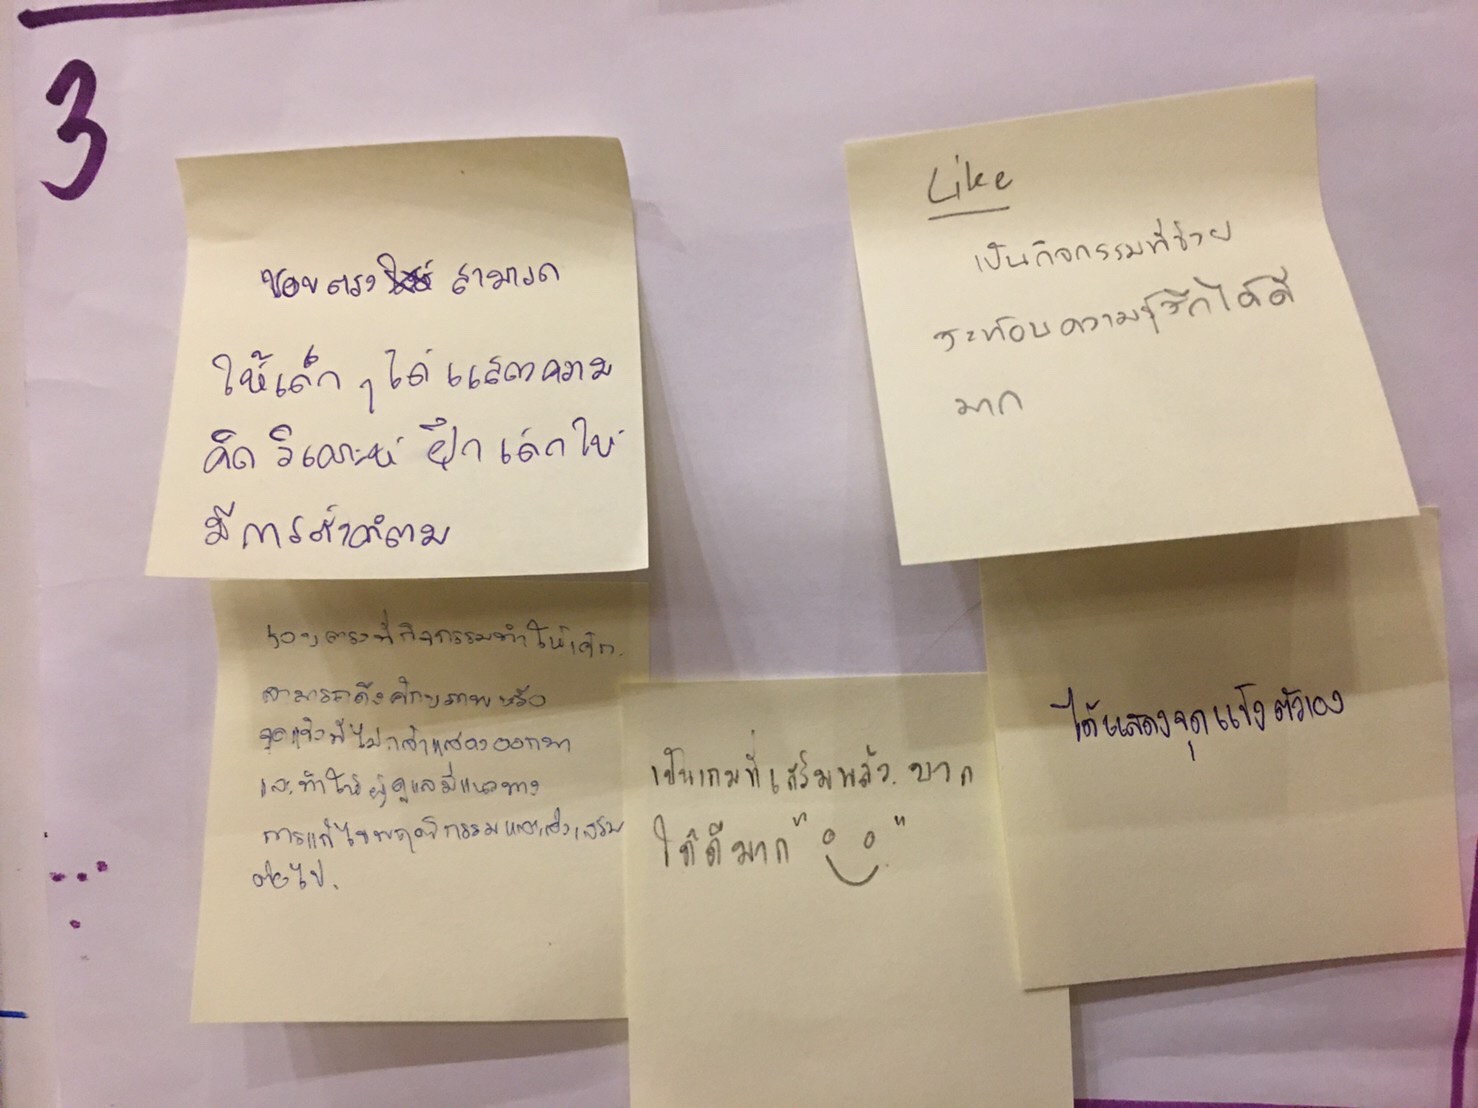 3
ชอบตรง สามารถ
ให้เด็ก ๆ ได้แสดงความ
คิด วิเคราะห์ ฝึกเด็กให้
มีการตั้งคำถาม
Like
เป็นกิจกรรมที่ช่วย
สะท้อนความรู้สึกได้ดี
มาก
ชอบตรงที่กิจกรรมทำให้เด็ก
สามารถดึงศักยภาพหรือ
จุดแข็งที่ไม่กล้าแสดงออกมา
และทำให้ผู้ดูแลมีแนวทาง
การแก้ไขพฤติกรรมและส่งเสริม
ต่อไป.
เป็นเกมที่เสริมพลัง บวก
ได้ดีมาก
ได้แสดงจุดแข็งตัวเอง